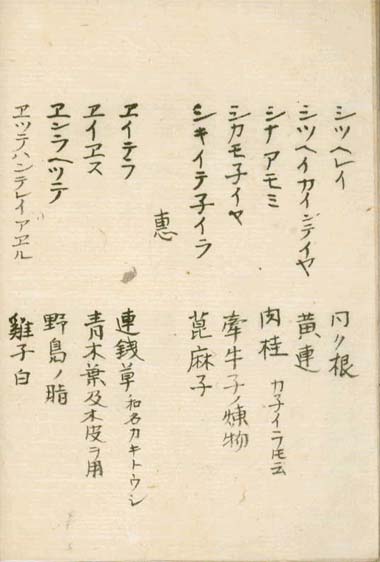 シツヘレイ 同ク根
シツヘイカインデイヤ 黄連
シナアモミ 肉桂 カ子イラ𪜈云
シカモ子イヤ 牽牛子ノ煉物
シキイテ子イラ 蓖麻子
恵
ヱイテラ 連銭草 和名カキトウシ
ヱイヱス 青木葉及木皮ヲ用
ヱンラヘツテ 野島ノ脂
ヱツテハンテレイアヱル 雞子白